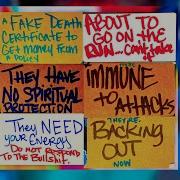 A FAKE Death
Certificate to
Get money from
A POLICY
ABOUT TO
GO ON THE
RUN...
THEY HAVE
NO SPIRITUAL
PROTECTION
IMMUNE
to
ATTACKS
They NEED
your ENERGY
DO NOT RESPOND
TO THE BULLSHIT.
THEY'RE
BACKING
OUT
NOW